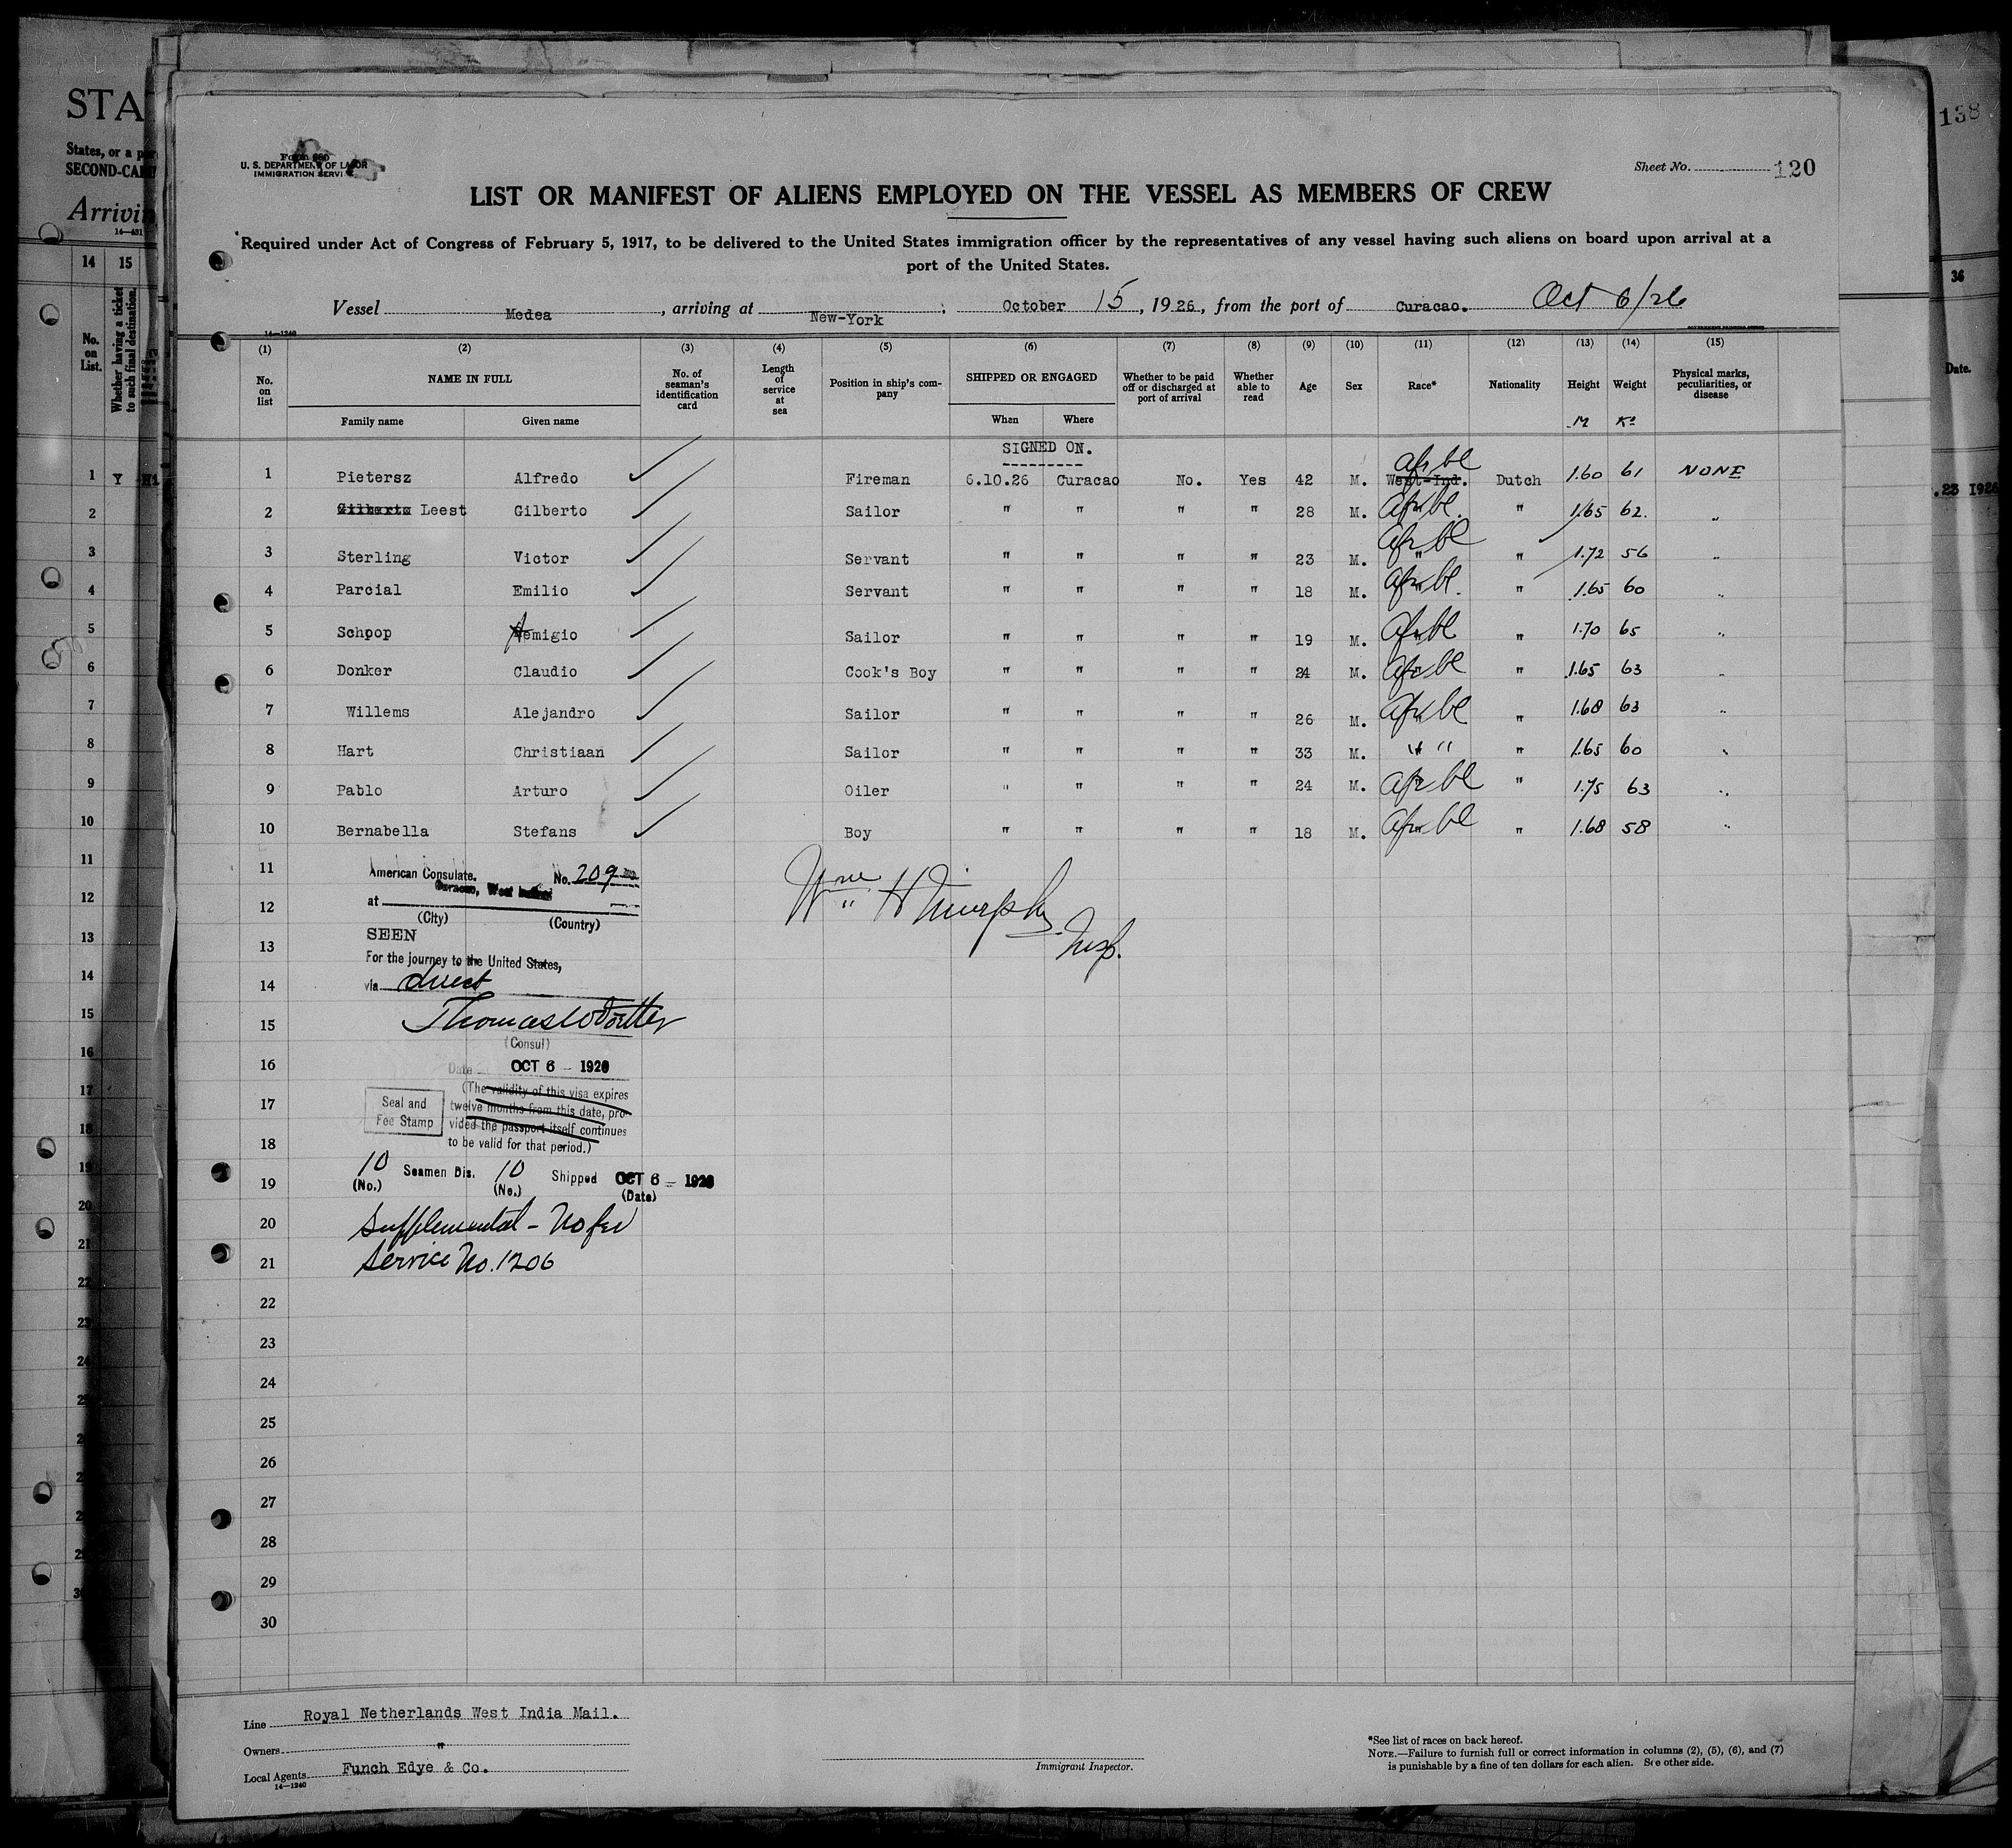 STA
States, or a
SECOND-CA
Arrivin
14—431
14 15
No. on List.
Whether having a ticket to such final destination.
1 Y
2
3
4
5
6
7
8
9
10
11
12
13
14
15
16
17
18
19
20
21
22
23
24
138
36
Date.
23 1926
Form 680
U. S. DEPARTMENT OF LABOR
IMMIGRATION SERVI
Sheet No. 120
LIST OR MANIFEST OF ALIENS EMPLOYED ON THE VESSEL AS MEMBERS OF CREW
Required under Act of Congress of February 5, 1917, to be delivered to the United States immigration officer by the representatives of any vessel having such aliens on board upon arrival at a
port of the United States.
Vessel Medea, arriving at New-York, October 15, 1926, from the port of Curacao. Oct 6/26
14—1240
GOVERNMENT PRINTING OFFICE
(1) (2) (3) (4) (5) (6) (7) (8) (9) (10) (11) (12) (13) (14) (15)
No. on list NAME IN FULL No. of seaman's identification card Length of service at sea Position in ship's company SHIPPED OR ENGAGED Whether to be paid off or discharged at port of arrival Whether able to read Age Sex Race* Nationality Height Weight Physical marks, peculiarities, or disease
Family name Given name When Where M Ko
SIGNED ON.
1 Pietersz Alfredo ✓ Fireman 6.10.26 Curacao No. Yes 42 M. West-Ind. Afr bl Dutch 1.60 61 NONE
2 Gilberto Leest Gilberto ✓ Sailor " " " " 28 M. Afr bl. " 1.65 62. "
3 Sterling Victor ✓ Servant " " " " 23 M. Afr bl " 1.72 56 "
4 Parcial Emilio ✓ Servant " " " " 18 M. Afr bl. " 1.65 60 "
5 Schpop Aemigio ✓ Sailor " " " " 19 M. Afr bl " 1.70 65 "
6 Donker Claudio ✓ Cook's Boy " " " " 24 M. Afr bl " 1.65 63 "
7 Willems Alejandro ✓ Sailor " " " " 26 M. Afr bl " 1.68 63 "
8 Hart Christiaan ✓ Sailor " " " " 33 M. " " " 1.65 60 "
9 Pablo Arturo ✓ Oiler " " " " 24 M. Afr bl " 1.75 63 "
10 Bernabella Stefans ✓ Boy " " " " 18 M. Afr bl " 1.68 58 "
11 American Consulate. No. 209
at Curacao, West Indies
12 (City) (Country)
Wm H Murphy
Insp.
SEEN
13 For the journey to the United States,
14 via direct
15
(Consul)
16 Date OCT 6 – 1926
(The validity of this visa expires
17 Seal and Fee Stamp twelve months from this date, pro-
vided the passport itself continues
18 to be valid for that period.)
19 10 Seamen Dis. 10 Shipped OCT 6 – 1926
(No.) (No.) (Date)
20 Supplemental – No fee
21 Service No. 1206
22
23
24
25
26
27
28
29
30
Line Royal Netherlands West India Mail.
Owners "
Local Agents Funch Edye & Co.
14—1240
Immigrant Inspector.
*See list of races on back hereof.
NOTE.—Failure to furnish full or correct information in columns (2), (5), (6), and (7)
is punishable by a fine of ten dollars for each alien. See other side.